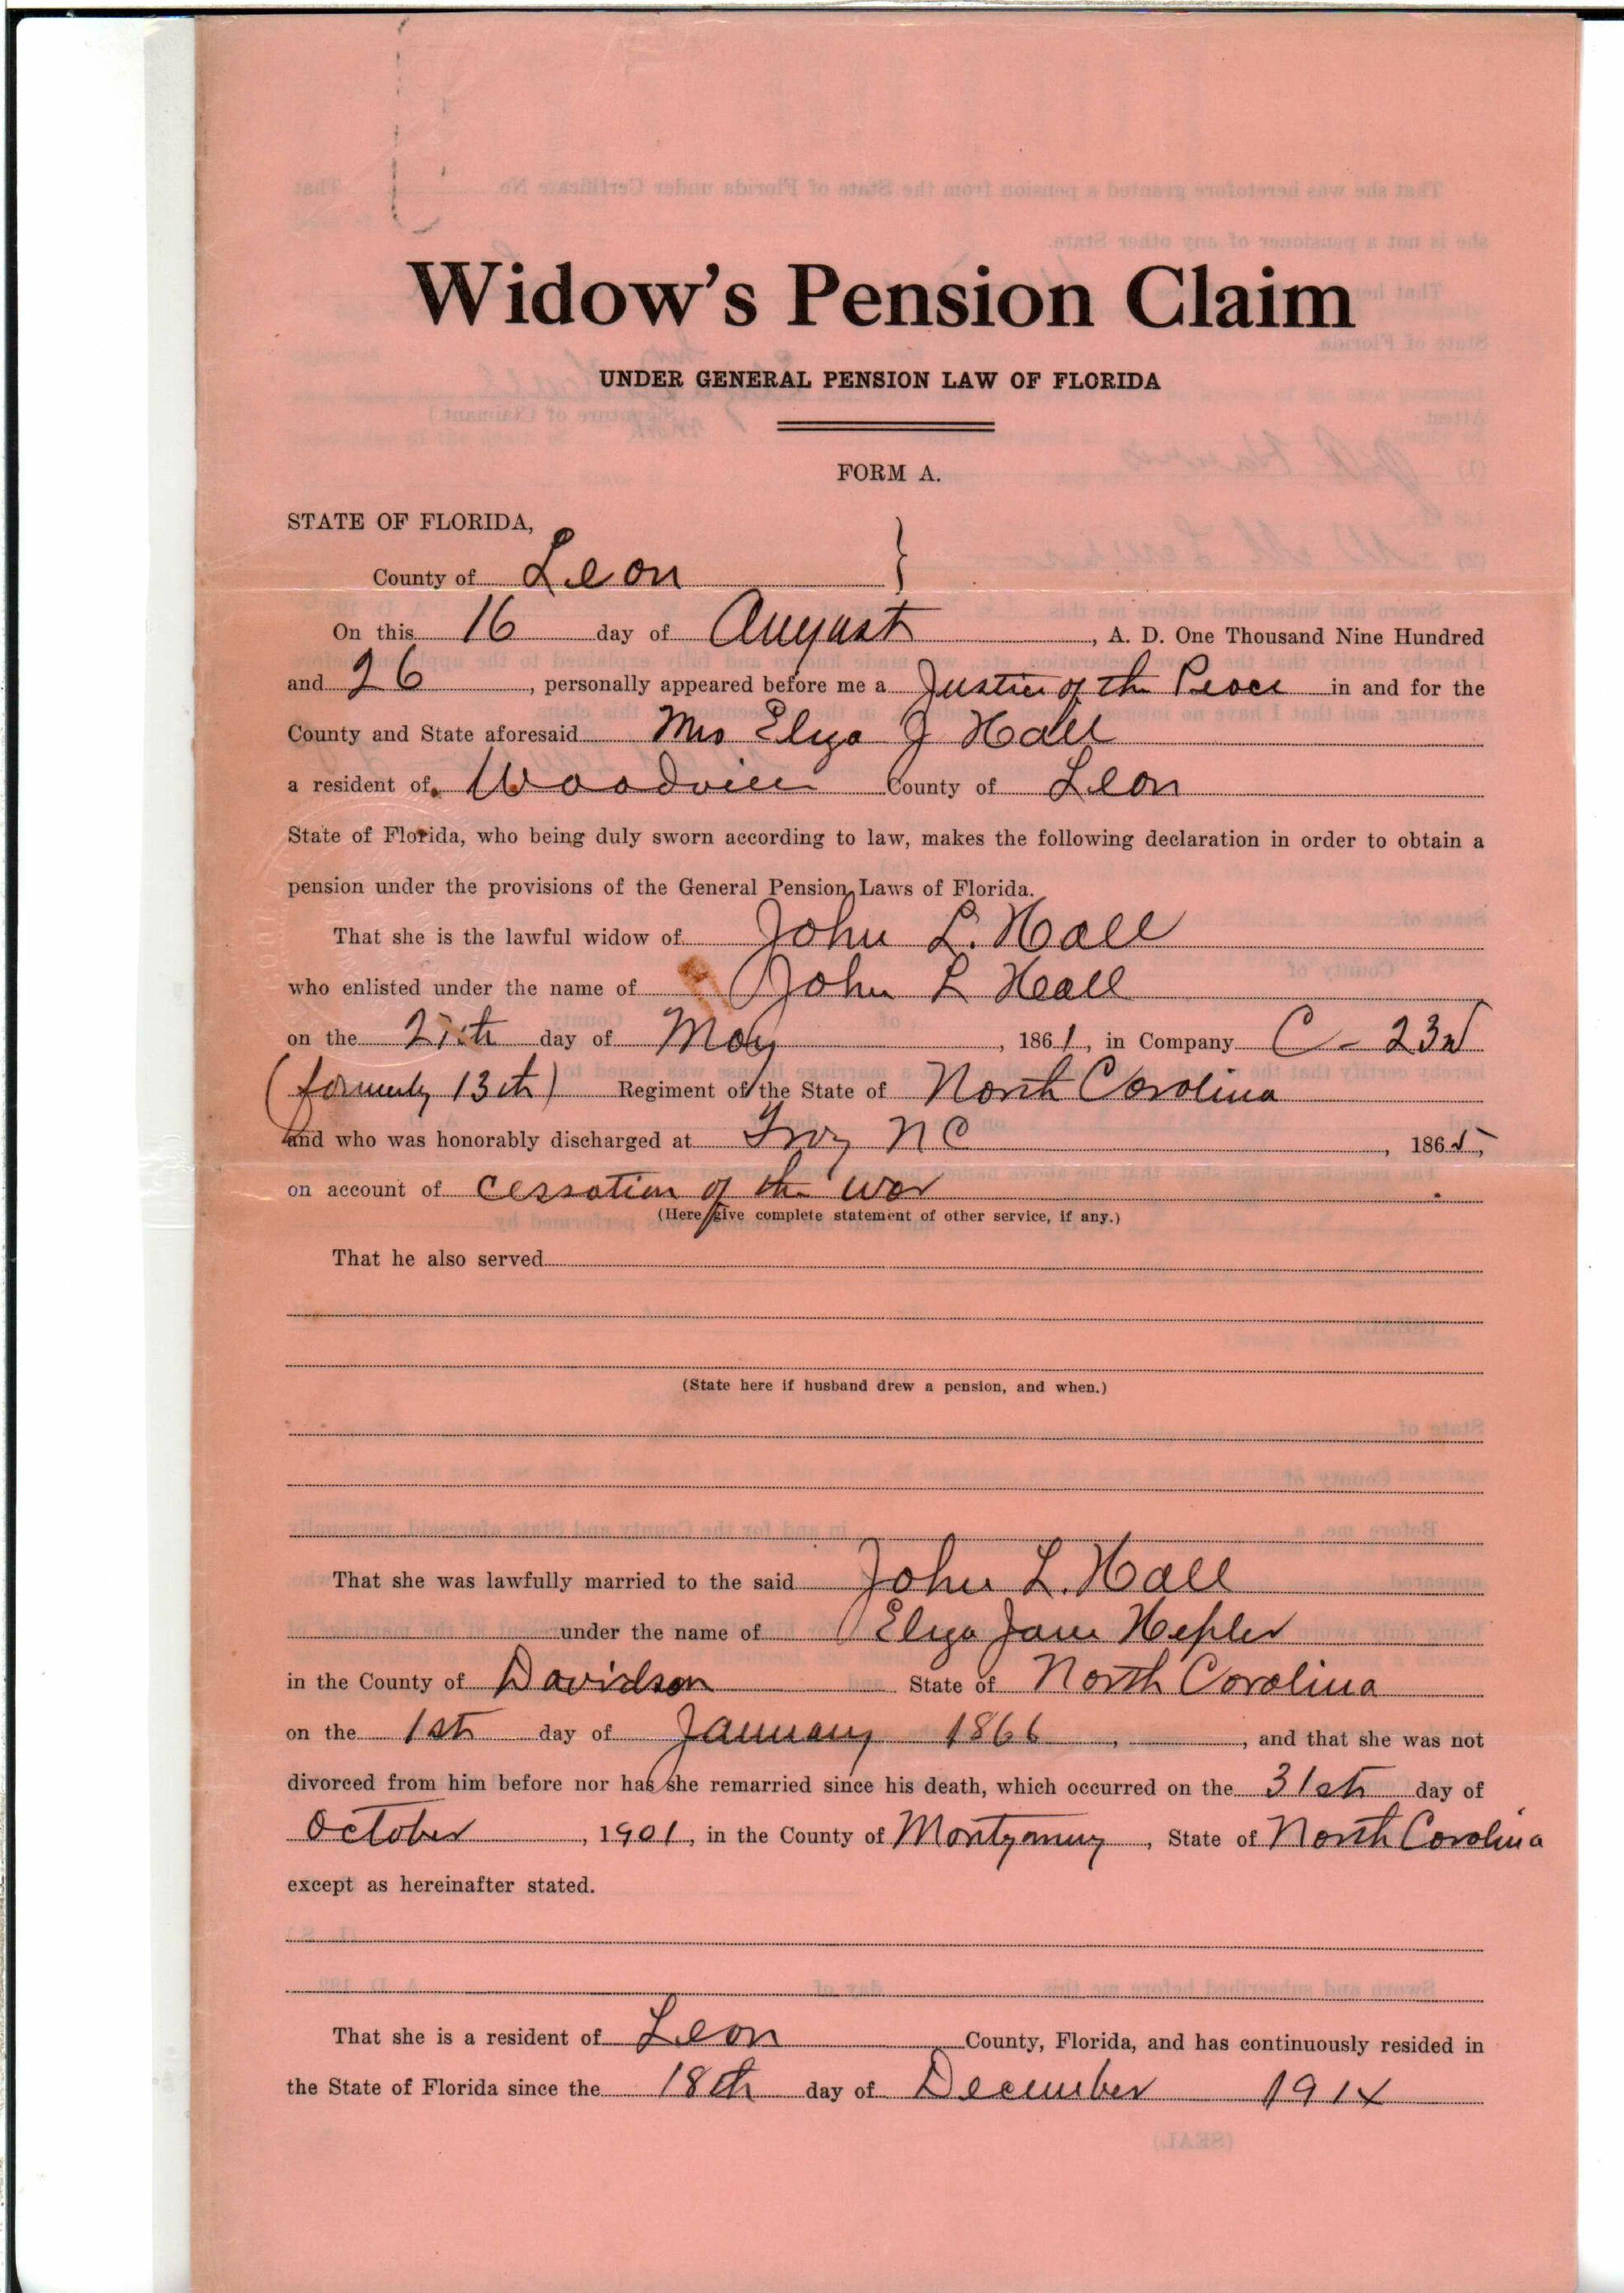 Widow's Pension Claim
UNDER GENERAL PENSION LAW OF FLORIDA
FORM A.
STATE OF FLORIDA,
County of Leon }
On this 16 day of August, A. D. One Thousand Nine Hundred
and 26, personally appeared before me a Justice of the Peace in and for the
County and State aforesaid Mrs Eliza J Hall
a resident of Woodville County of Leon
State of Florida, who being duly sworn according to law, makes the following declaration in order to obtain a
pension under the provisions of the General Pension Laws of Florida.
That she is the lawful widow of John L. Hall
who enlisted under the name of John L Hall
on the day of May, 1861, in Company C - 23d
(formerly 13th) Regiment of the State of North Carolina
and who was honorably discharged at Troy NC, 1865,
on account of cessation of the war.
(Here give complete statement of other service, if any.)
That he also served
(State here if husband drew a pension, and when.)
That she was lawfully married to the said John L. Hall
under the name of Eliza Jane Hepler
in the County of Davidson State of North Carolina
on the 1st day of January 1866, , and that she was not
divorced from him before nor has she remarried since his death, which occurred on the 31st day of
October, 1901, in the County of Montgomery, State of North Carolina
except as hereinafter stated.
That she is a resident of Leon County, Florida, and has continuously resided in
the State of Florida since the 18th day of December 1914